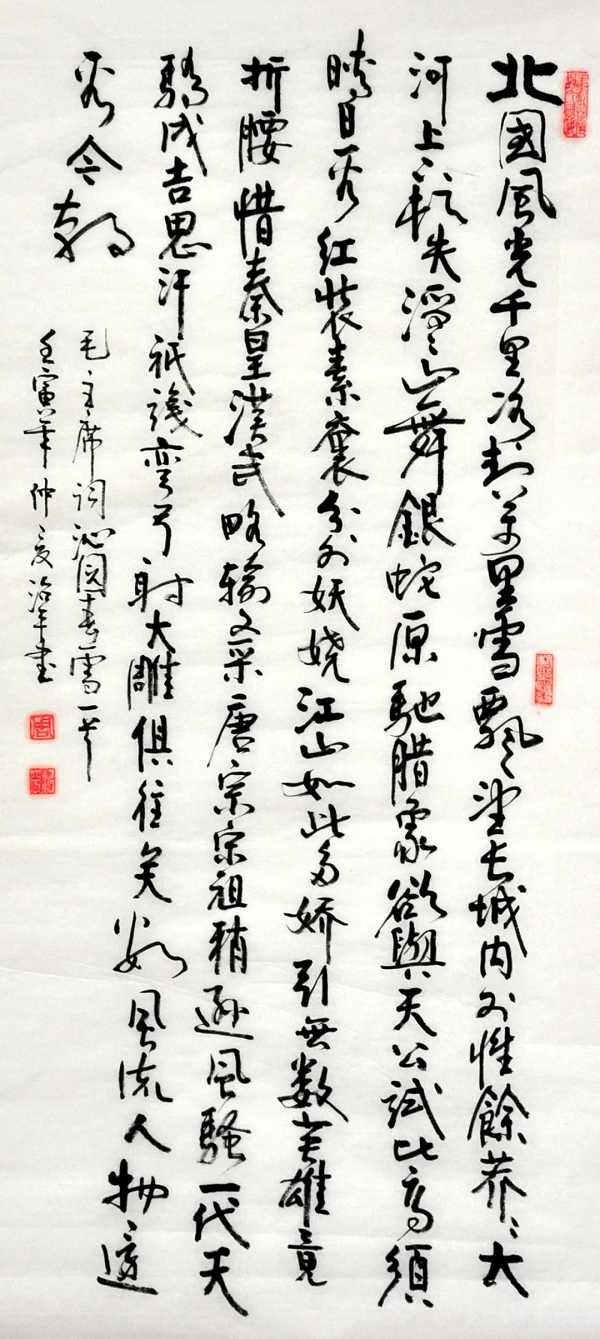 北國風光千里冰封萬里雪飄望长城内外惟餘莽〻大
河上下頓失滔〻山舞銀蛇原馳腊象欲與天公試比高須
晴日看紅裝素裹分外妖娆江山如此多娇引無数英雄竟
折腰惜秦皇漢武略输文采唐宗宋祖稍遜風騷一代天
骄成吉思汗祇識弯弓射大雕俱往矣数風流人物還
看今朝
毛主席词沁园春雪一首
壬寅年仲夏治平書